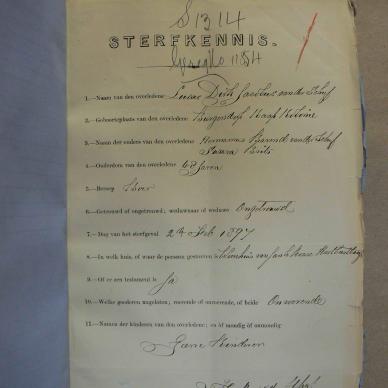 S1314
STERFKENNIS.
1.—Naam van den overledene: Dirk Jacobus van der Schyf
2.—Geboorteplaats van den overledene: Burgersdorp Kaap Kolonie
3.—Namen der ouders van den overledene: Hermanus Barend van der Schyf
Brits
4.—Ouderdom van den overledene: 68 Jaren
5.—Beroep Boer
6.—Getrouwd of ongetrouwd; weduwnaar of weduwe Ongetrouwd
7.—Dag van het sterfgeval 24 Feb 1897
8.—In welk huis, of waar de persoon gestorven is Woonhuis van
9.—Of er een testament is Ja
10.—Welke goederen nagelaten; roerende of onroerende, of beide Onroerende
11.—Namen der kinderen van den overledene; en of mondig of onmondig
Geene Kinderen